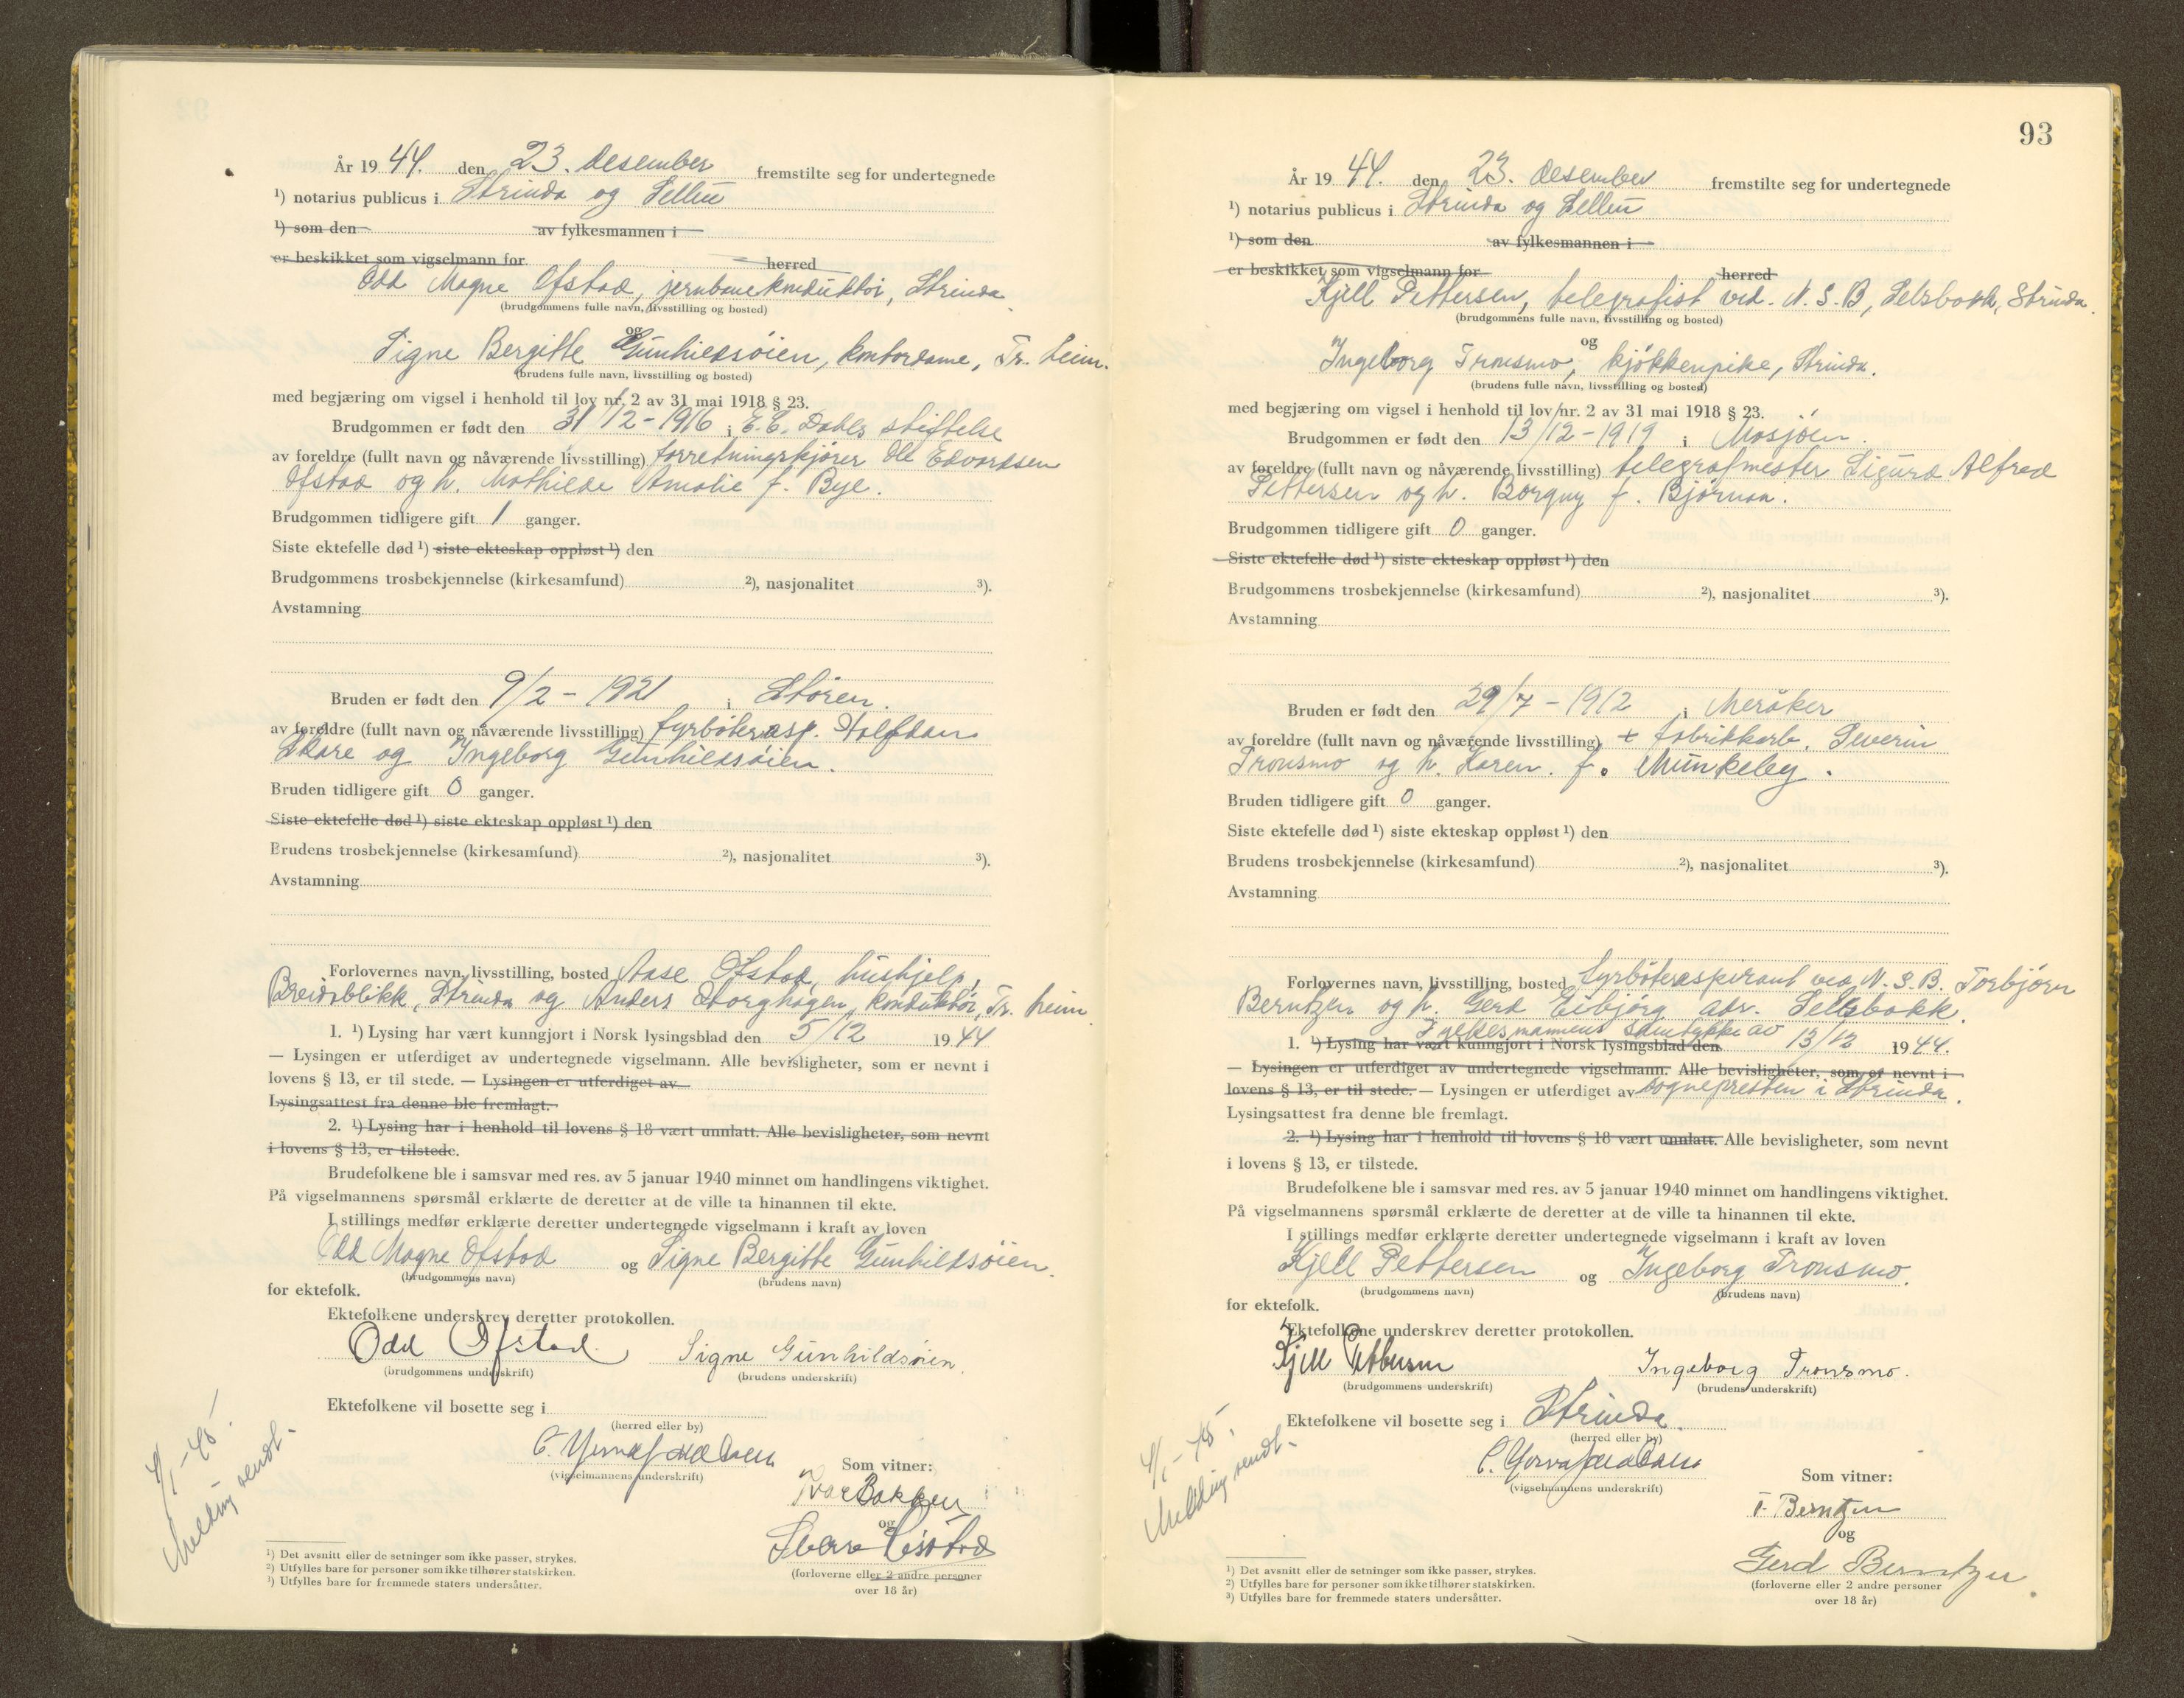 År 1944. den 23. desember fremstilte seg for undertegnede
¹) notarius publicus i Strinda og Selbu
¹) som den av fylkesmannen i
er beskikket som vigselmann for herred
Odd Magne Ofstad, jernbanekonduktör, Strinda
(brudgommens fulle navn, livsstilling og bosted)
og
Signe Bergitte Gunhildsöien, kontordame, Tr. heim.
(brudens fulle navn, livsstilling og bosted)
med begjæring om vigsel i henhold til lov nr. 2 av 31 mai 1918 § 23.
Brudgommen er født den 31/12-1916 i E.C. Dahls stiftelse
av foreldre (fullt navn og nåværende livsstilling) forretningskjører Ole Edvardsen
Ofstad og h. Mathilde Amalie f. Bye.
Brudgommen tidligere gift 1 ganger.
Siste ektefelle død ¹) siste ekteskap oppløst ¹) den
Brudgommens trosbekjennelse (kirkesamfund) ²), nasjonalitet ³).
Avstamning
Bruden er født den 9/2 - 1921 i Stören.
av foreldre (fullt navn og nåværende livsstilling) fyrböterasp. Halfdan
Skare og Ingeborg Gunhildsöien.
Bruden tidligere gift 0 ganger.
Siste ektefelle død ¹) siste ekteskap oppløst ¹) den
Brudens trosbekjennelse (kirkesamfund) ²), nasjonalitet ³).
Avstamning
Forlovernes navn, livsstilling, bosted Aase Ofstad, hushjelp,
Breidablikk, Strinda og Anders Storhaugen, konduktör, Tr. heim
1. ¹) Lysing har vært kunngjort i Norsk lysingsblad den 5/12 1944
— Lysingen er utferdiget av undertegnede vigselmann. Alle bevisligheter, som er nevnt i
lovens § 13, er til stede. — Lysingen er utferdiget av
Lysingsattest fra denne ble fremlagt.
2. ¹) Lysing har i henhold til lovens § 18 vært unnlatt. Alle bevisligheter, som nevnt
i lovens § 13, er tilstede.
Brudefolkene ble i samsvar med res. av 5 januar 1940 minnet om handlingens viktighet.
På vigselmannens spørsmål erklærte de deretter at de ville ta hinannen til ekte.
I stillings medfør erklærte deretter undertegnede vigselmann i kraft av loven
Odd Magne Ofstad og Signe Bergitte Gunhildsöien.
(brudgommens navn) (brudens navn)
for ektefolk.
Ektefolkene underskrev deretter protokollen.
Odd Ofstad. Signe Gunhildsöien.
(brudgommens underskrift) (brudens underskrift)
Ektefolkene vil bosette seg i
(herred eller by)
(vigselmannens underskrift)
Som vitner:
Ivar Bakken
og
Sverre
(forloverne eller 2 andre personer
over 18 år)
4/1-45.
Melding sendt.
¹) Det avsnitt eller de setninger som ikke passer, strykes.
²) Utfylles bare for personer som ikke tilhører statskirken.
³) Utfylles bare for fremmede staters undersåtter.
93
År 1944. den 23. desember fremstilte seg for undertegnede
¹) notarius publicus i Strinda og Selbu
¹) som den av fylkesmannen i
er beskikket som vigselmann for herred
Kjell Pettersen, telegrafist ved. N.S.B, Selsbakk, Strinda.
(brudgommens fulle navn, livsstilling og bosted)
og
Ingeborg Tronsmo, kjökkenpike, Strinda.
(brudens fulle navn, livsstilling og bosted)
med begjæring om vigsel i henhold til lov nr. 2 av 31 mai 1918 § 23.
Brudgommen er født den 13/12-1919 i Mosjöen.
av foreldre (fullt navn og nåværende livsstilling) telegrafmester Sigurd Alfred
Pettersen og h. Borgny f. Björnaa.
Brudgommen tidligere gift 0 ganger.
Siste ektefelle død ¹) siste ekteskap oppløst ¹) den
Brudgommens trosbekjennelse (kirkesamfund) ²), nasjonalitet ³).
Avstamning
Bruden er født den 29/7 - 1912 i Meråker
av foreldre (fullt navn og nåværende livsstilling) + fabrikkarb. Severin
Tronsmo og h. Karen. f. Munkeby.
Bruden tidligere gift 0 ganger.
Siste ektefelle død ¹) siste ekteskap oppløst ¹) den
Brudens trosbekjennelse (kirkesamfund) ²), nasjonalitet ³).
Avstamning
Forlovernes navn, livsstilling, bosted fyrböteraspirant ved N.S.B. Torbjörn
Berntzen og h. Gerd Eibjörg adr. Selsbakk.
Fylkesmannens samtykke av
1. ¹) Lysing har vært kunngjort i Norsk lysingsblad den 13/12 1944.
— Lysingen er utferdiget av undertegnede vigselmann. Alle bevisligheter, som er nevnt i
lovens § 13, er til stede. — Lysingen er utferdiget av sognepresten i Strinda.
Lysingsattest fra denne ble fremlagt.
2. ¹) Lysing har i henhold til lovens § 18 vært unnlatt. Alle bevisligheter, som nevnt
i lovens § 13, er tilstede.
Brudefolkene ble i samsvar med res. av 5 januar 1940 minnet om handlingens viktighet.
På vigselmannens spørsmål erklærte de deretter at de ville ta hinannen til ekte.
I stillings medfør erklærte deretter undertegnede vigselmann i kraft av loven
Kjell Pettersen og Ingeborg Tronsmo.
(brudgommens navn) (brudens navn)
for ektefolk.
Ektefolkene underskrev deretter protokollen.
Kjell Pettersen Ingeborg Tronsmo.
(brudgommens underskrift) (brudens underskrift)
Ektefolkene vil bosette seg i Strinda.
(herred eller by)
(vigselmannens underskrift)
Som vitner:
T. Berntzen
og
Gerd Berntzen
(forloverne eller 2 andre personer
over 18 år)
4/1-45.
Melding sendt.
¹) Det avsnitt eller de setninger som ikke passer, strykes.
²) Utfylles bare for personer som ikke tilhører statskirken.
³) Utfylles bare for fremmede staters undersåtter.